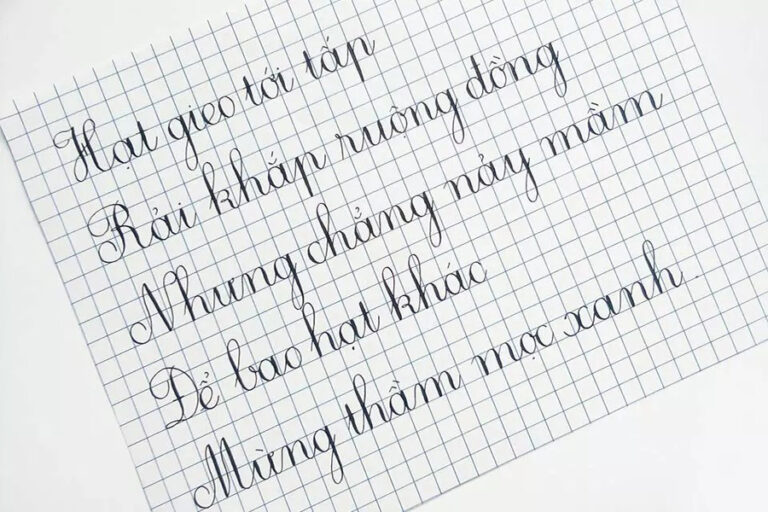 Hạt gieo tới tấp
Rải khắp ruộng đồng
Nhưng chẳng nảy mầm
Để bao hạt khác
Mừng thầm mọc xanh.